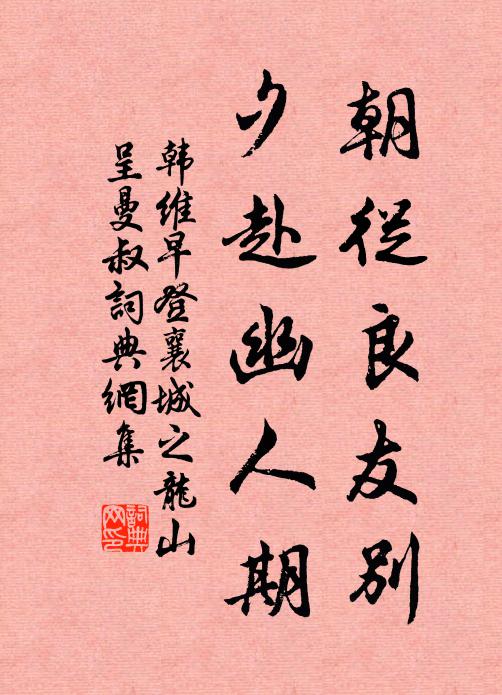 朝從良友別
夕赴幽人期
韩維早登襄城之龍山
呈曼叔詞典網集
詞典网印